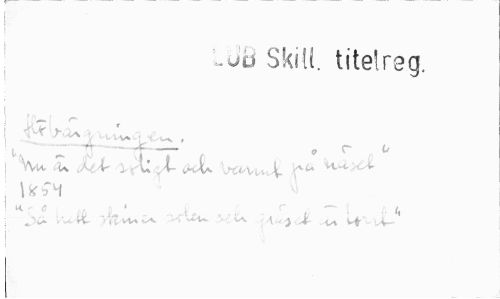 LUB Skill. titelreg.
Höbärgningen.
"Nu är det soligt och varmt på näset"
1854
"Så hett skiner solen och gräset är torrt"